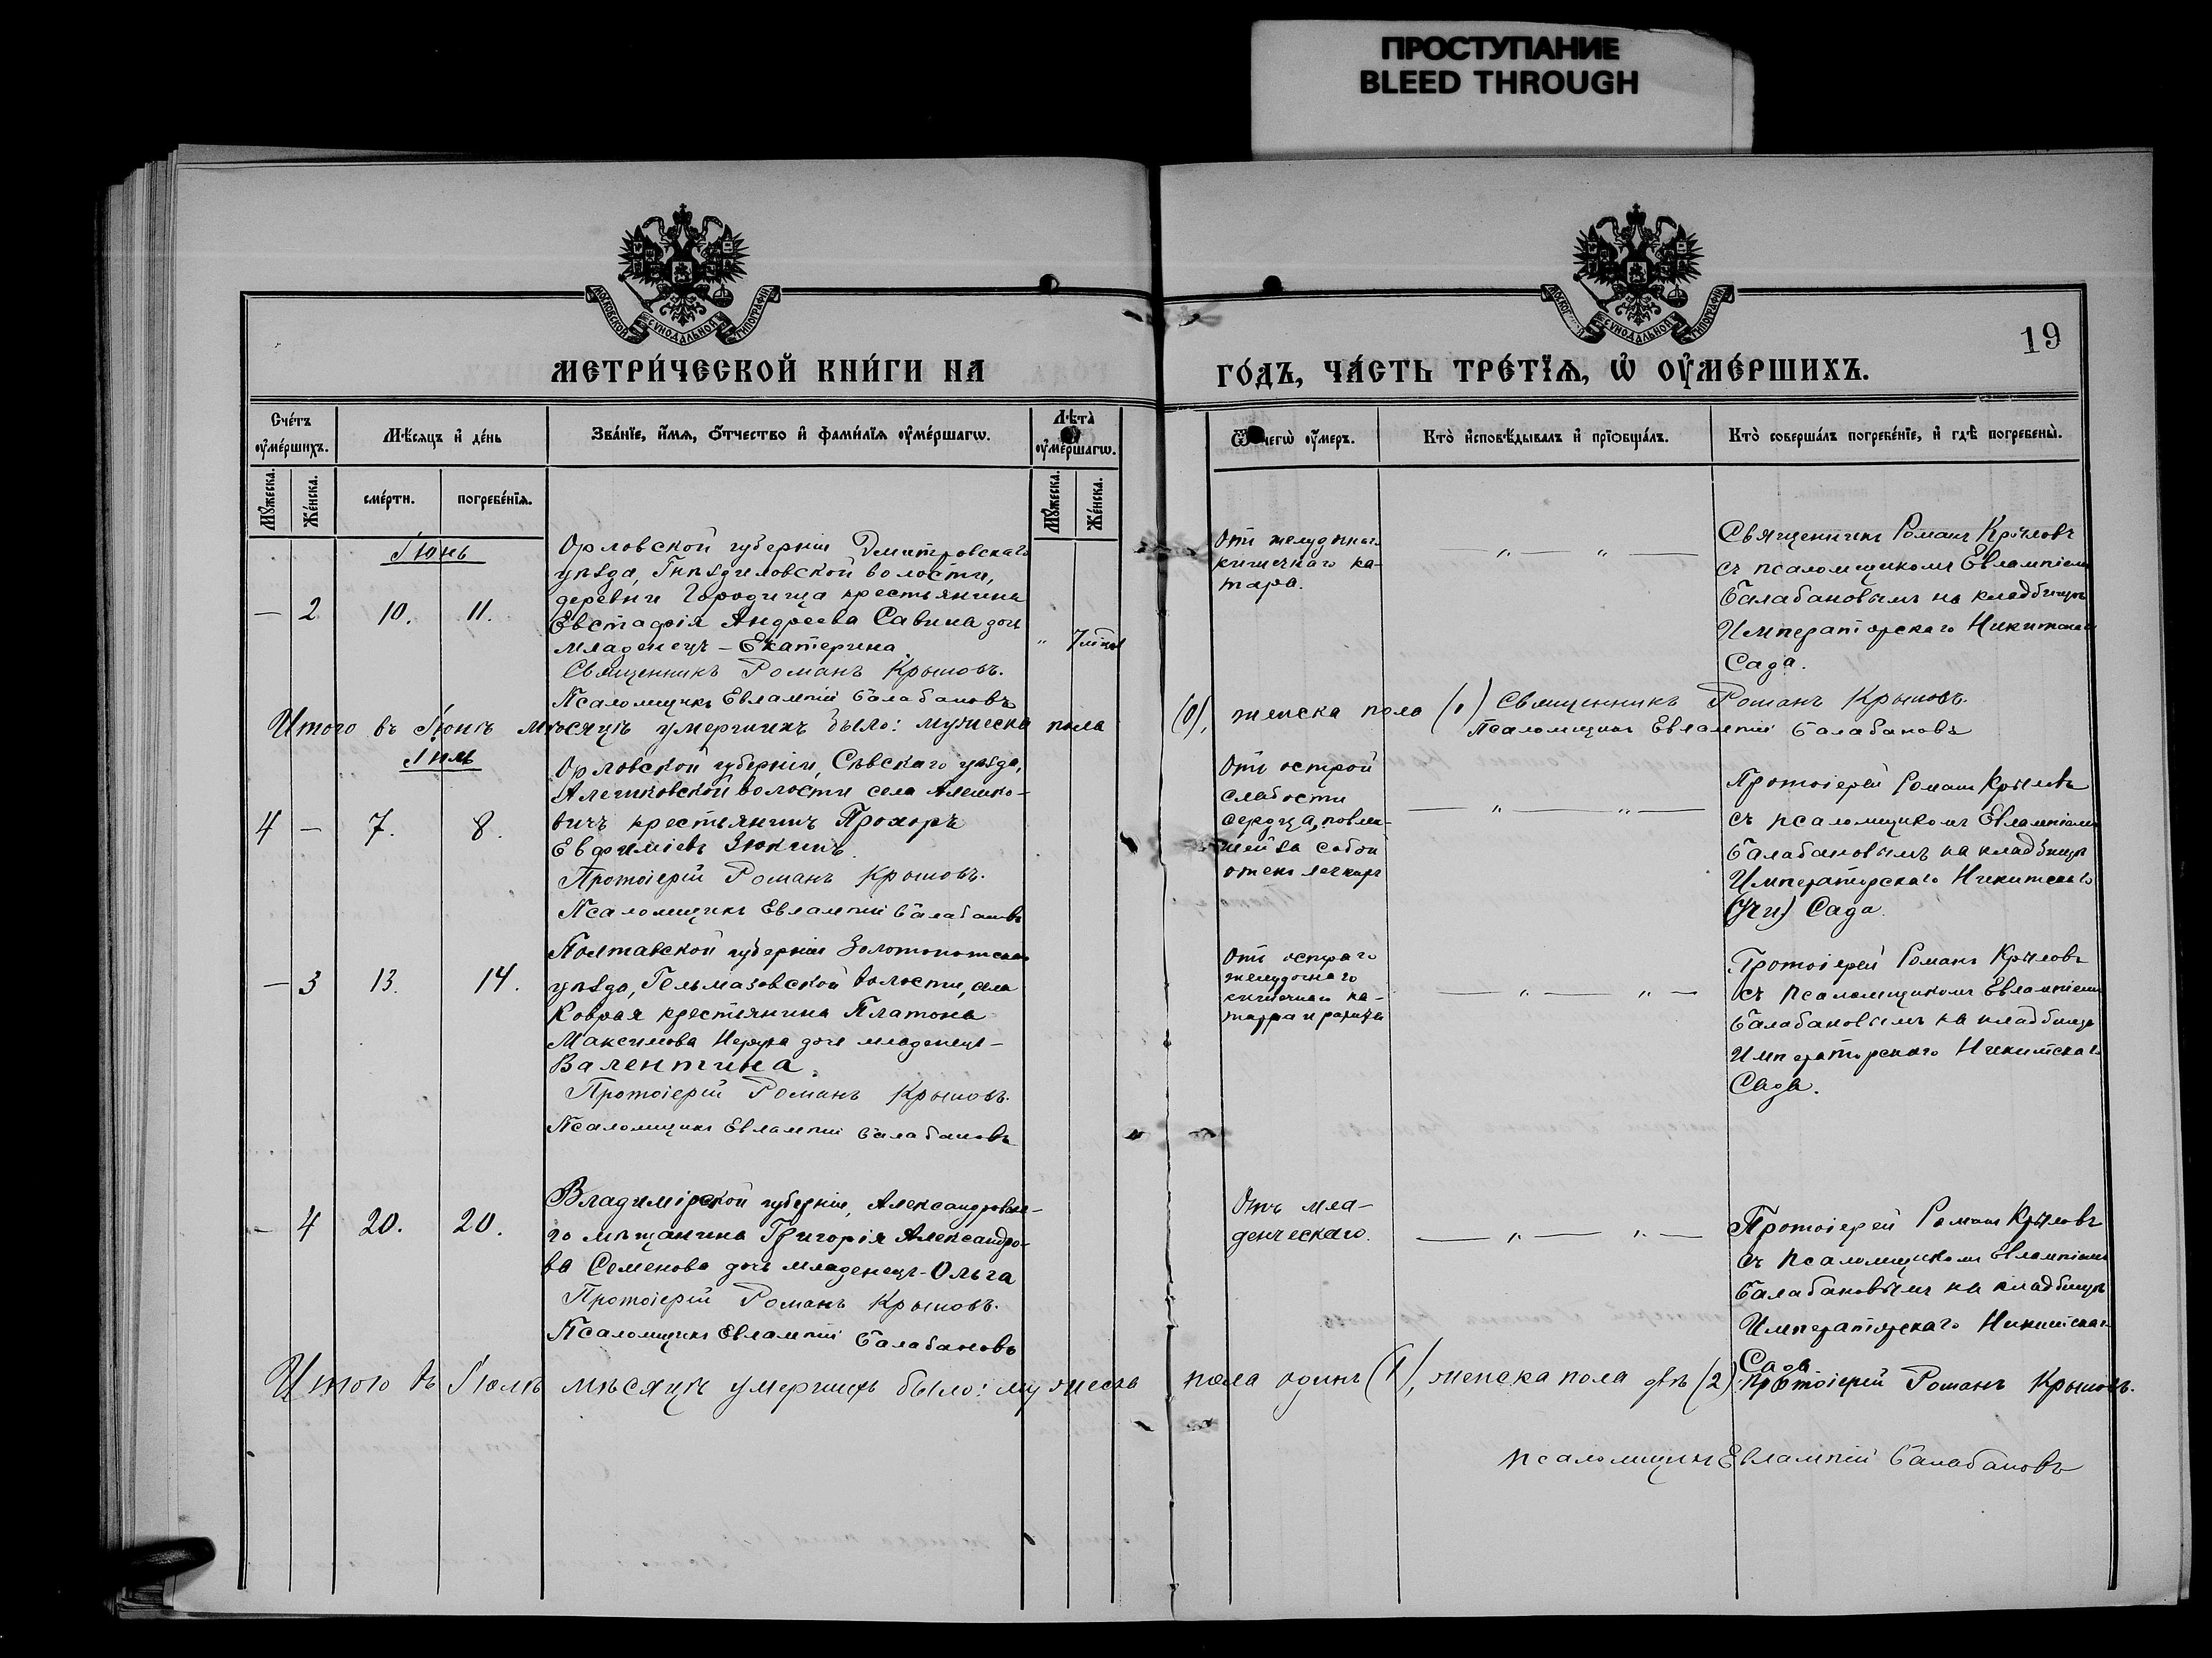 ПРОСТУПАНИЕ
BLEED THROUGH
МОСКОВСКОЙ СѴНОДАЛЬНОЙ ТИПОГРАФІИ
СѴНОДАЛЬНОЙ ТИПОГРАФІИ
19
МЕТРИ́ЧЕСКОЙ КНИ́ГИ НА
ГО́ДЪ, ЧА́СТЬ ТРЕ́ТІѦ, Ѡ҆ ОУ҆МЕ́РШИХЪ.
Сче́тъ оу҆ме́ршихъ.
Мѣ́сяцъ и҆ де́нь
Зва́нїе, и҆́мѧ, ѻ҆́тчество и҆ фами́лїѧ оу҆ме́ршагѡ.
Лѣта̀ оу҆ме́ршагѡ.
Ѿ чегѡ̀ оу҆́меръ.
Кто̀ и҆сповѣ́дывалъ и҆ прїѡбща́лъ.
Кто̀ соверша́лъ погребе́нїе, и҆ гдѣ̀ погребены̀.
Мꙋ́жеска.
Же́нска.
сме́рти.
погребе́нїѧ.
Мꙋ́жеска.
Же́нска.
Іюнь
— 2 10. 11.
Орловской губерніи Дмитровскаго
уѣзда, Гнѣздиловской волости,
деревни Городища крестьянина
Евстафія Андреева Савина дочь
младенецъ – Екатерина.
Священникъ Романъ Крыловъ.
Псаломщикъ Евлампій Балабановъ
" 7
Отъ желудочно-
кишечнаго ка-
тара.
— " — " —
Священникъ Романъ Крыловъ
съ псаломщикомъ Евлампіемъ
Балабановымъ на кладбищѣ
Императорскаго Никитскаго
Сада.
Итого въ Іюнѣ мѣсяцѣ умершихъ было: мужеска пола (0), женска пола (1) Священникъ Романъ Крыловъ.
Псаломщикъ Евлампій Балабановъ
Іюль
4 — 7. 8.
Орловской губерніи, Сѣвскаго уѣзда,
Алешковской волости села Алешко-
вичъ крестьянинъ Прохоръ
Евфиміевъ Зюкинъ.
Протоіерей Романъ Крыловъ.
Псаломщикъ Евлампій Балабановъ
Отъ острой
слабости
сердца, повлек-
шей за собой
отекъ легкихъ
— " — " —
Протоіерей Романъ Крыловъ
съ псаломщикомъ Евлампіемъ
Балабановымъ на кладбищѣ
Императорскаго Никитскаго
Сада.
— 3 13. 14.
Полтавской губерніи Золотоношскаго
уѣзда, Гельмязовской волости, села
Коврая крестьянина Платона
Максимова дочь младенецъ –
Валентина.
Протоіерей Романъ Крыловъ.
Псаломщикъ Евлампій Балабановъ
Отъ остраго
желудочнаго
кишечнаго ка-
тарра и рахита
— " — " —
Протоіерей Романъ Крыловъ
съ псаломщикомъ Евлампіемъ
Балабановымъ на кладбищѣ
Императорскаго Никитскаго
Сада.
— 4 20. 20.
Владимірской губерніи, Александровска-
го мѣщанина Григорія Александро-
ва Семенова дочь младенецъ – Ольга
Протоіерей Романъ Крыловъ.
Псаломщикъ Евлампій Балабановъ
Отъ мла-
денческаго.
— " — " —
Протоіерей Романъ Крыловъ
съ псаломщикомъ Евлампіемъ
Балабановымъ на кладбищѣ
Императорскаго Никитскаго
Сада.
Итого въ Іюлѣ мѣсяцѣ умершихъ было: мужеска пола одинъ (1), женска пола двѣ (2). Протоіерей Романъ Крыловъ.
Псаломщикъ Евлампій Балабановъ